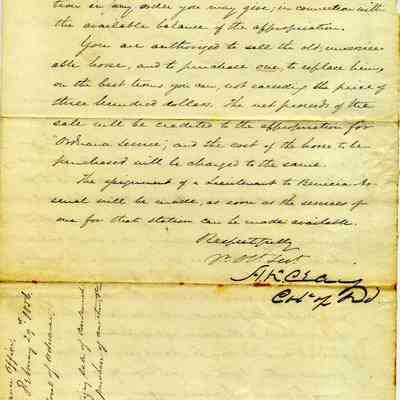 tion in any order you may give, in connection with
the available balance of the appropriation.
You are authorized to sell the old, unservice
able horse, and to purchase one, to replace him,
on the best terms you can, not exceeding the price of
three hundred dollars. The net proceeds of the
sale will be credited to the appropriation for
"Ordnance service", and the cost of the horse to be
purchased will be charged to the same.
The assignment of a Lieutenant to Benicia Ar-
senal will be made, as soon as the services of
one for that station can be made available.
Respectfully
Yr. Obt. Servt.
H. K. Craig
Col. of Ord.
Office,
February 29th 1856.
of Ordnance.
sale of
purchase of another